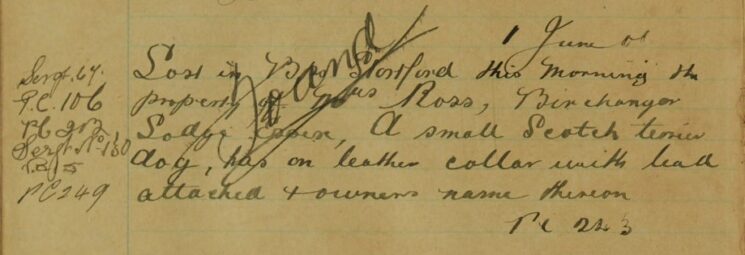 1 June 01
Lost in B/p Stortford this Morning the
property of Mrs Ross, Birchanger
Lodge Essex, A small Scotch terrier
dog, has on leather collar with lead
attached + owners name thereon
PC 243
Found
Sergt. 67.
P.C. 106
Sergt No 130
PC 249